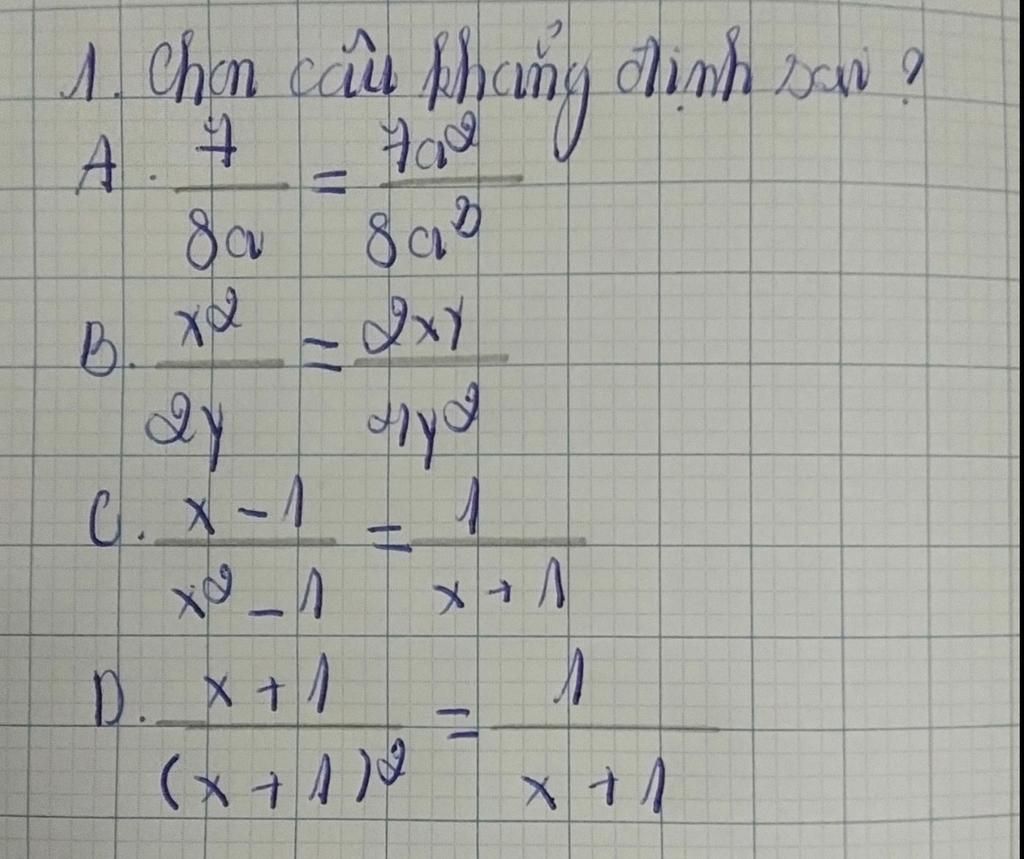 1. Chọn câu khẳng định sai ?
A. 7/8a = 7a²/8a³
B. x²/2y = 2xy/4y²
C. x - 1/x² - 1 = 1/x + 1
D. x + 1/(x + 1)² = 1/x + 1